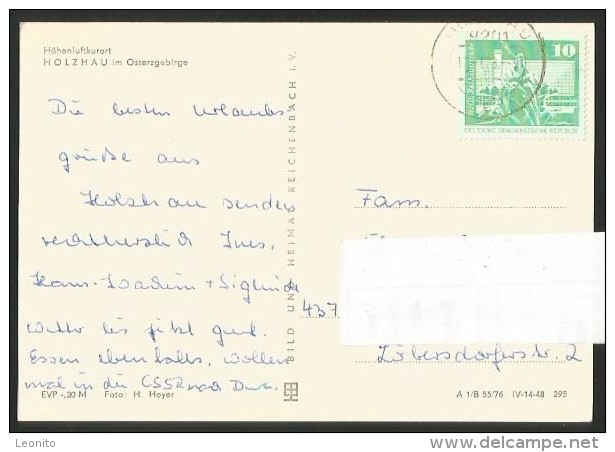 Höhenluftkurort
HOLZHAU im Osterzgebirge
Die besten Urlaubs
grüße aus
Holzhau senden
recht herzlich Ines,
Hans-Joachim + Siglinde
Wetter bis jetzt gut.
Essen ebenfalls, wollen
mal in die CSSR nach
EVP -,20 M Foto: H. Hoyer
BILD UND HEIMAT REICHENBACH I. V.
9201
10
DEUTSCHE DEMOKRATISCHE REPUBLIK
Fam.
437
Löbersdorferstr. 2
A 1/B 55/76 IV-14-48 295
Leonito
www.delcampe.net